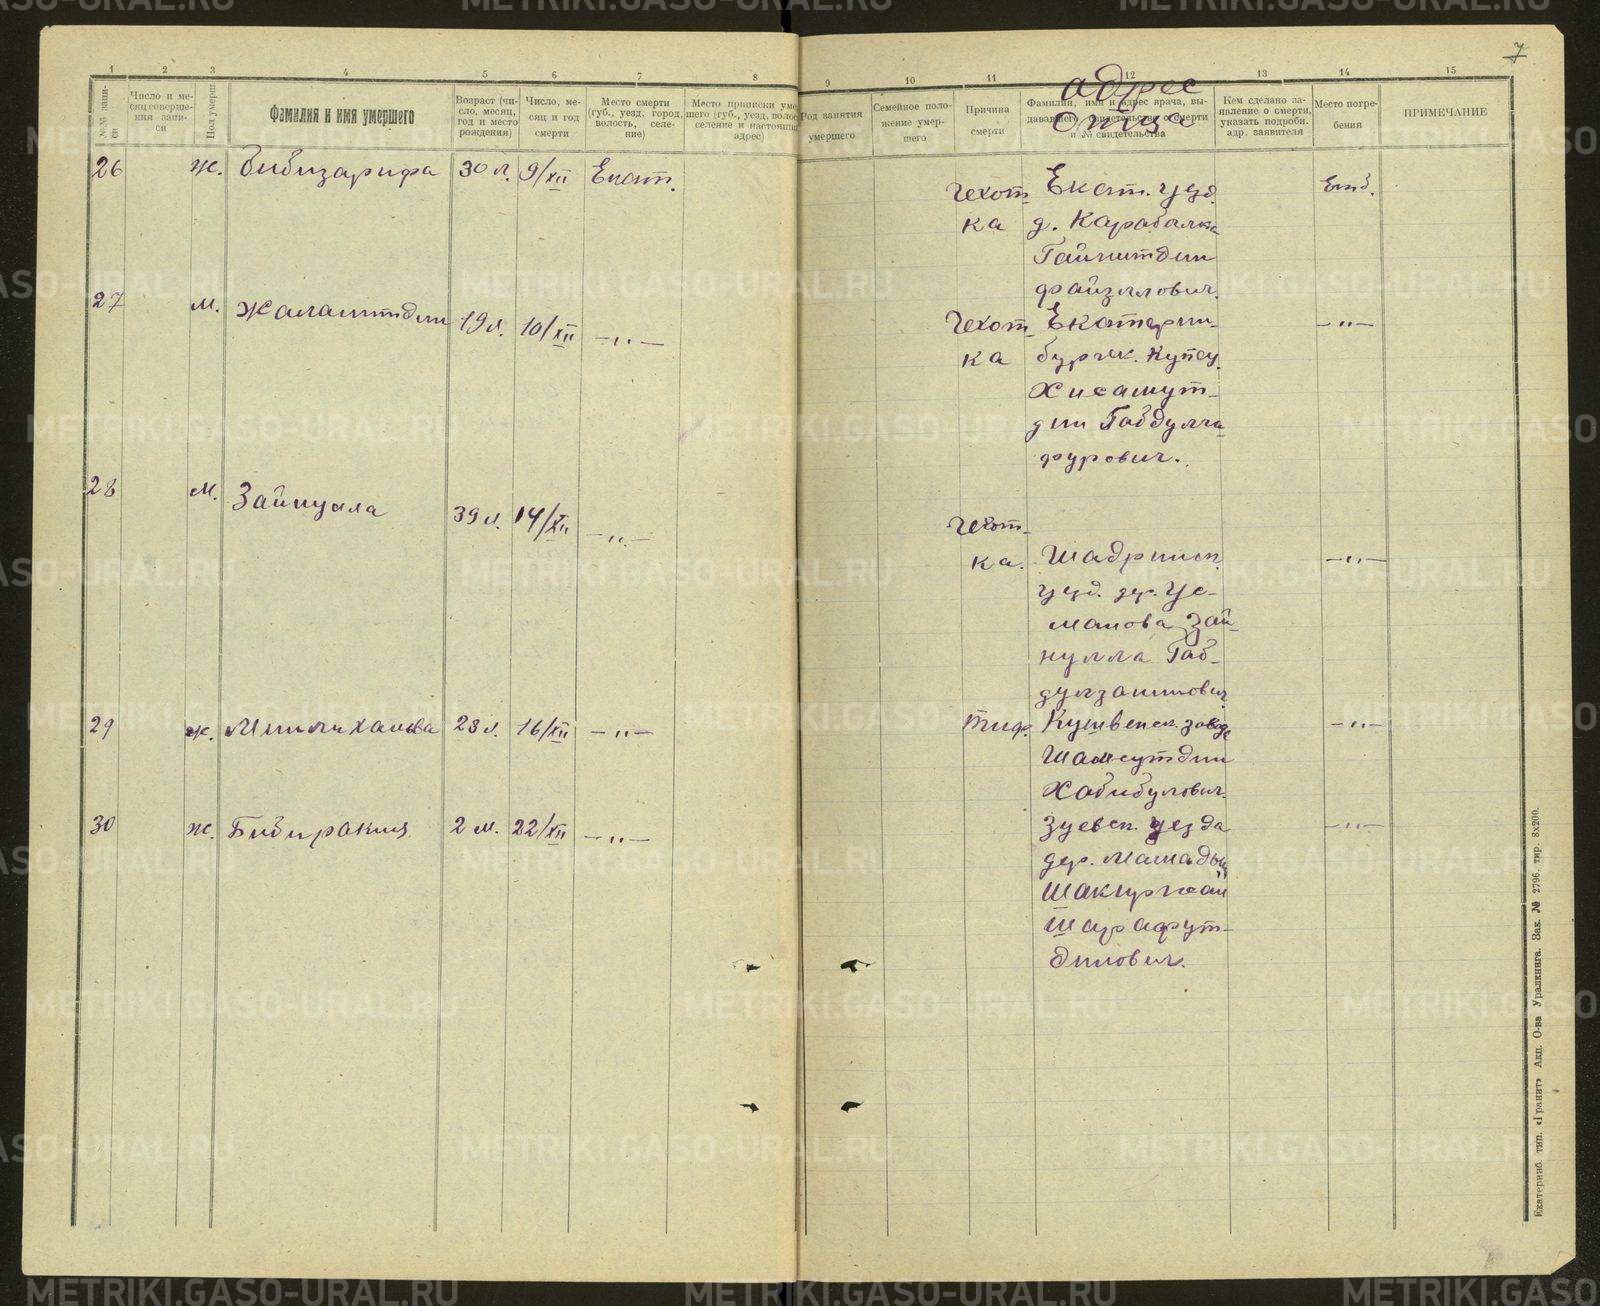 7
1 2 3 4 5 6 7 8 9 10 11 12 13 14 15
№№ записи
Число и месяц совершения записи
Пол умерш.
Фамилия и имя умершего
Возраст (число, месяц, год и место рождения)
Число, месяц и год смерти
Место смерти (губ., уезд, город, волость, селение)
Место приписки умершего (губ., уезд, волость, селение и настоящий адрес)
Род занятия умершего
Семейное положение умершего
Причина смерти
Фамилия, имя и адрес врача, выдавшего свидетельство о смерти и № свидетельства
адрес
отца
Кем сделано заявление о смерти, указать подробн. адр. заявителя
Место погребения
ПРИМЕЧАНИЕ
26 ж. Бибизарифа 30 л. 9/XII Екат.
Чехот- Екат. уезд. Екб.
ка д.
Гайнитдин
файзуллович.
27 м. Жалалитдин 19 л. 10/XII —"—
Чехот- Екатерин- —"—
ка бургск. Купец.
Хисамут-
дин Габдулга-
фурович.
28 м. Зайнулла 39 л. 14/XII —"—
Чехот-
ка. Шадринск. —"—
уезд. дер. Ус-
манова Зай-
нулла Габ-
29 ж. 23 л. 16/XII —"—
тиф. Кушвенск. завода —"—
Шамсутдин
Хабибулович.
30 ж. 2 м. 22/XII —"—
уезда —"—
дер.
Шарафут-
динович.
Екатеринб. тип. «Гранит» Акц. О-ва Уралкнига. Зак. № 2796. тир. 8х200.
METRIKI.GASO-URAL.RU